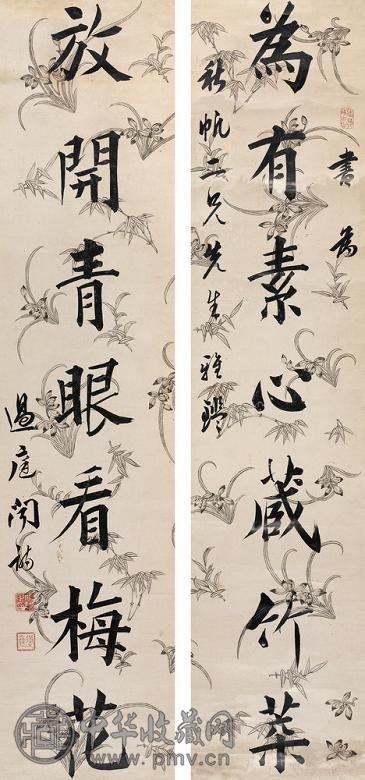 書為
為有素心蔵竹葉
秋帆二兄先生雅鑒
放開青眼看梅花
過庭聞
中华收藏网
www.pmv.cn